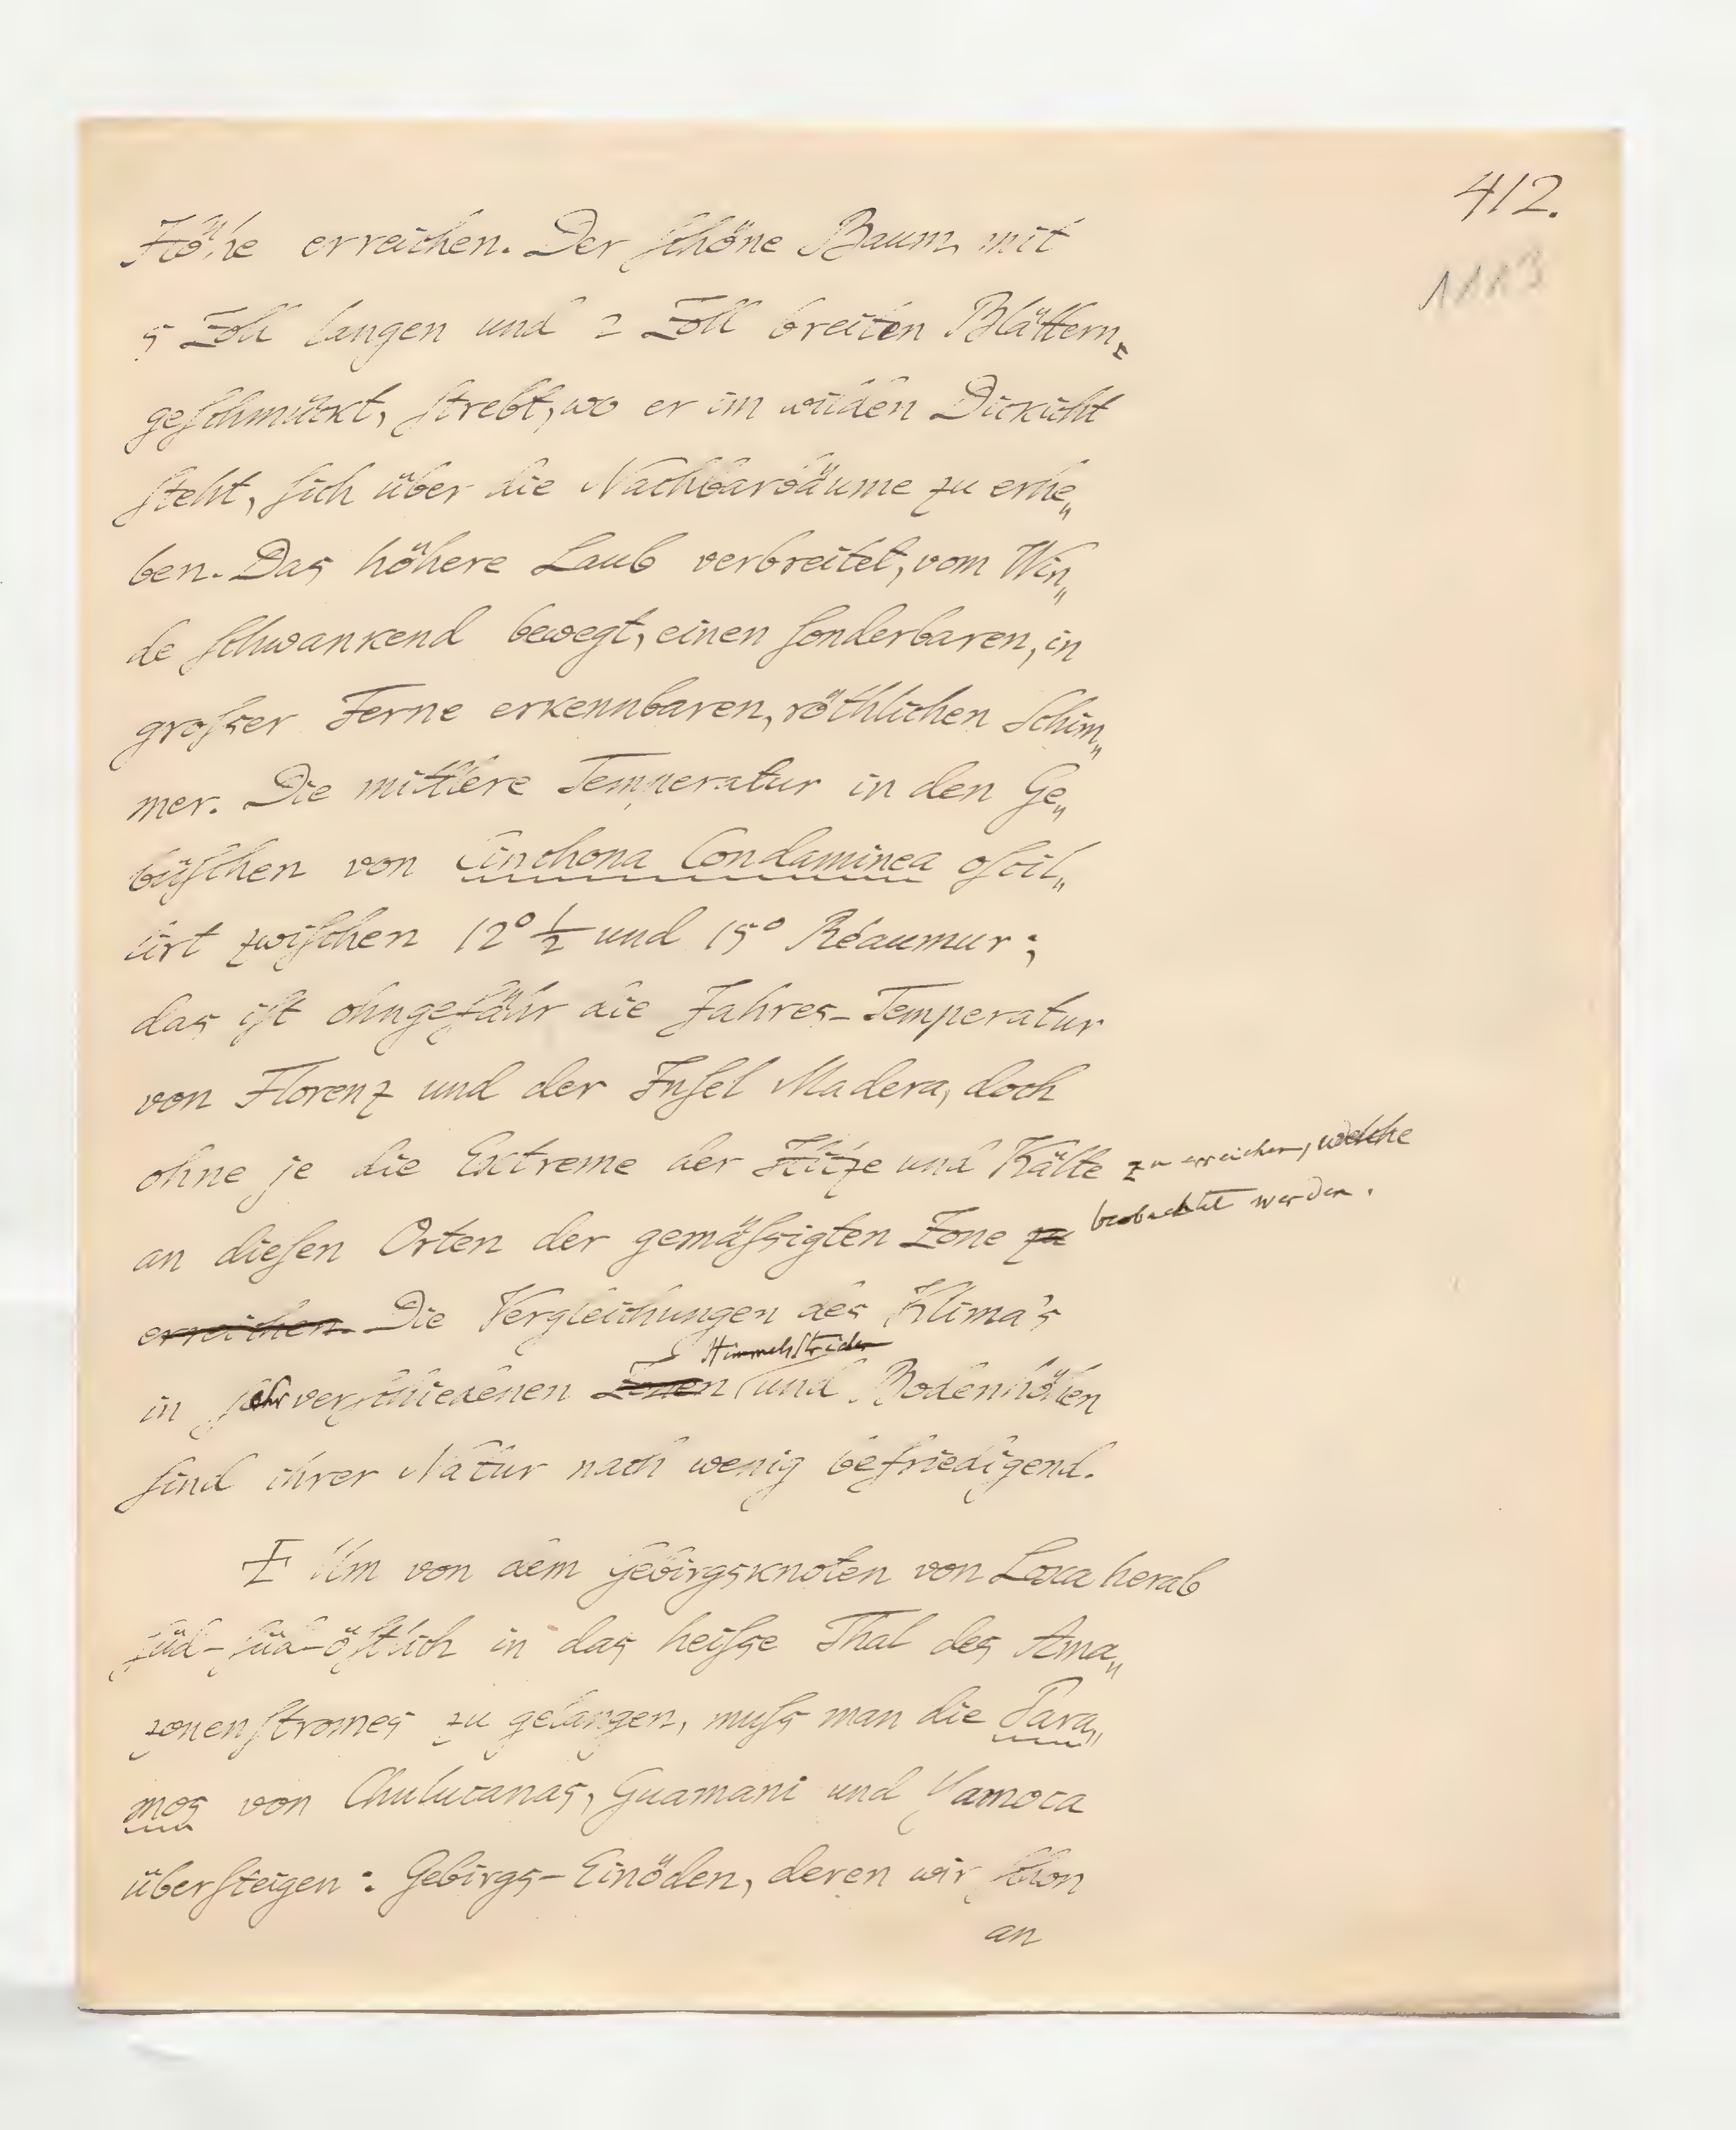 412.
1113
Höhe erreichen. Der ſchöne Baum, mit
5 Zoll langen und 2 Zoll breiten Blättern
geſchmückt, ſtrebt, wo er im wilden Dickicht
ſteht, ſich über die Nachbarbäume zu erhe„
ben. Das höhere Laub verbreitet, vom Win„
de ſchwankend bewegt, einen ſonderbaren, in
groſser Ferne erkennbaren, röthlichen Schim„
mer. Die mittlere Temperatur in den Ge„
büſchen von Cinchona Condaminea oſcil„
lirt zwiſchen 12° ½ und 15° Réaumur;
das iſt ohngefähr die Jahres-Temperatur
von Florenz und der Inſel Madera, doch
ohne je die Extreme der Hitze und Kälte zu erreichen, welche
an dieſen Orten der gemäſsigten Zone zu beobachtet werden.
erreichen. Die Vergleichungen des Klima's
Himmelſtriche
in ſehr verſchiedenen Zonen und Bodenhöhen
ſind ihrer Natur nach wenig befriedigend.
Um von dem Gebirgsknoten von Loxa herab
ſüd-ſüd-öſtlich in das heiſse Thal des Ama„
zonenſtromes zu gelangen, muſs man die Para„
mos von Chulucanas, Guamani und Yamoca
überſteigen: Gebirgs-Einöden, deren wir ſchon
an